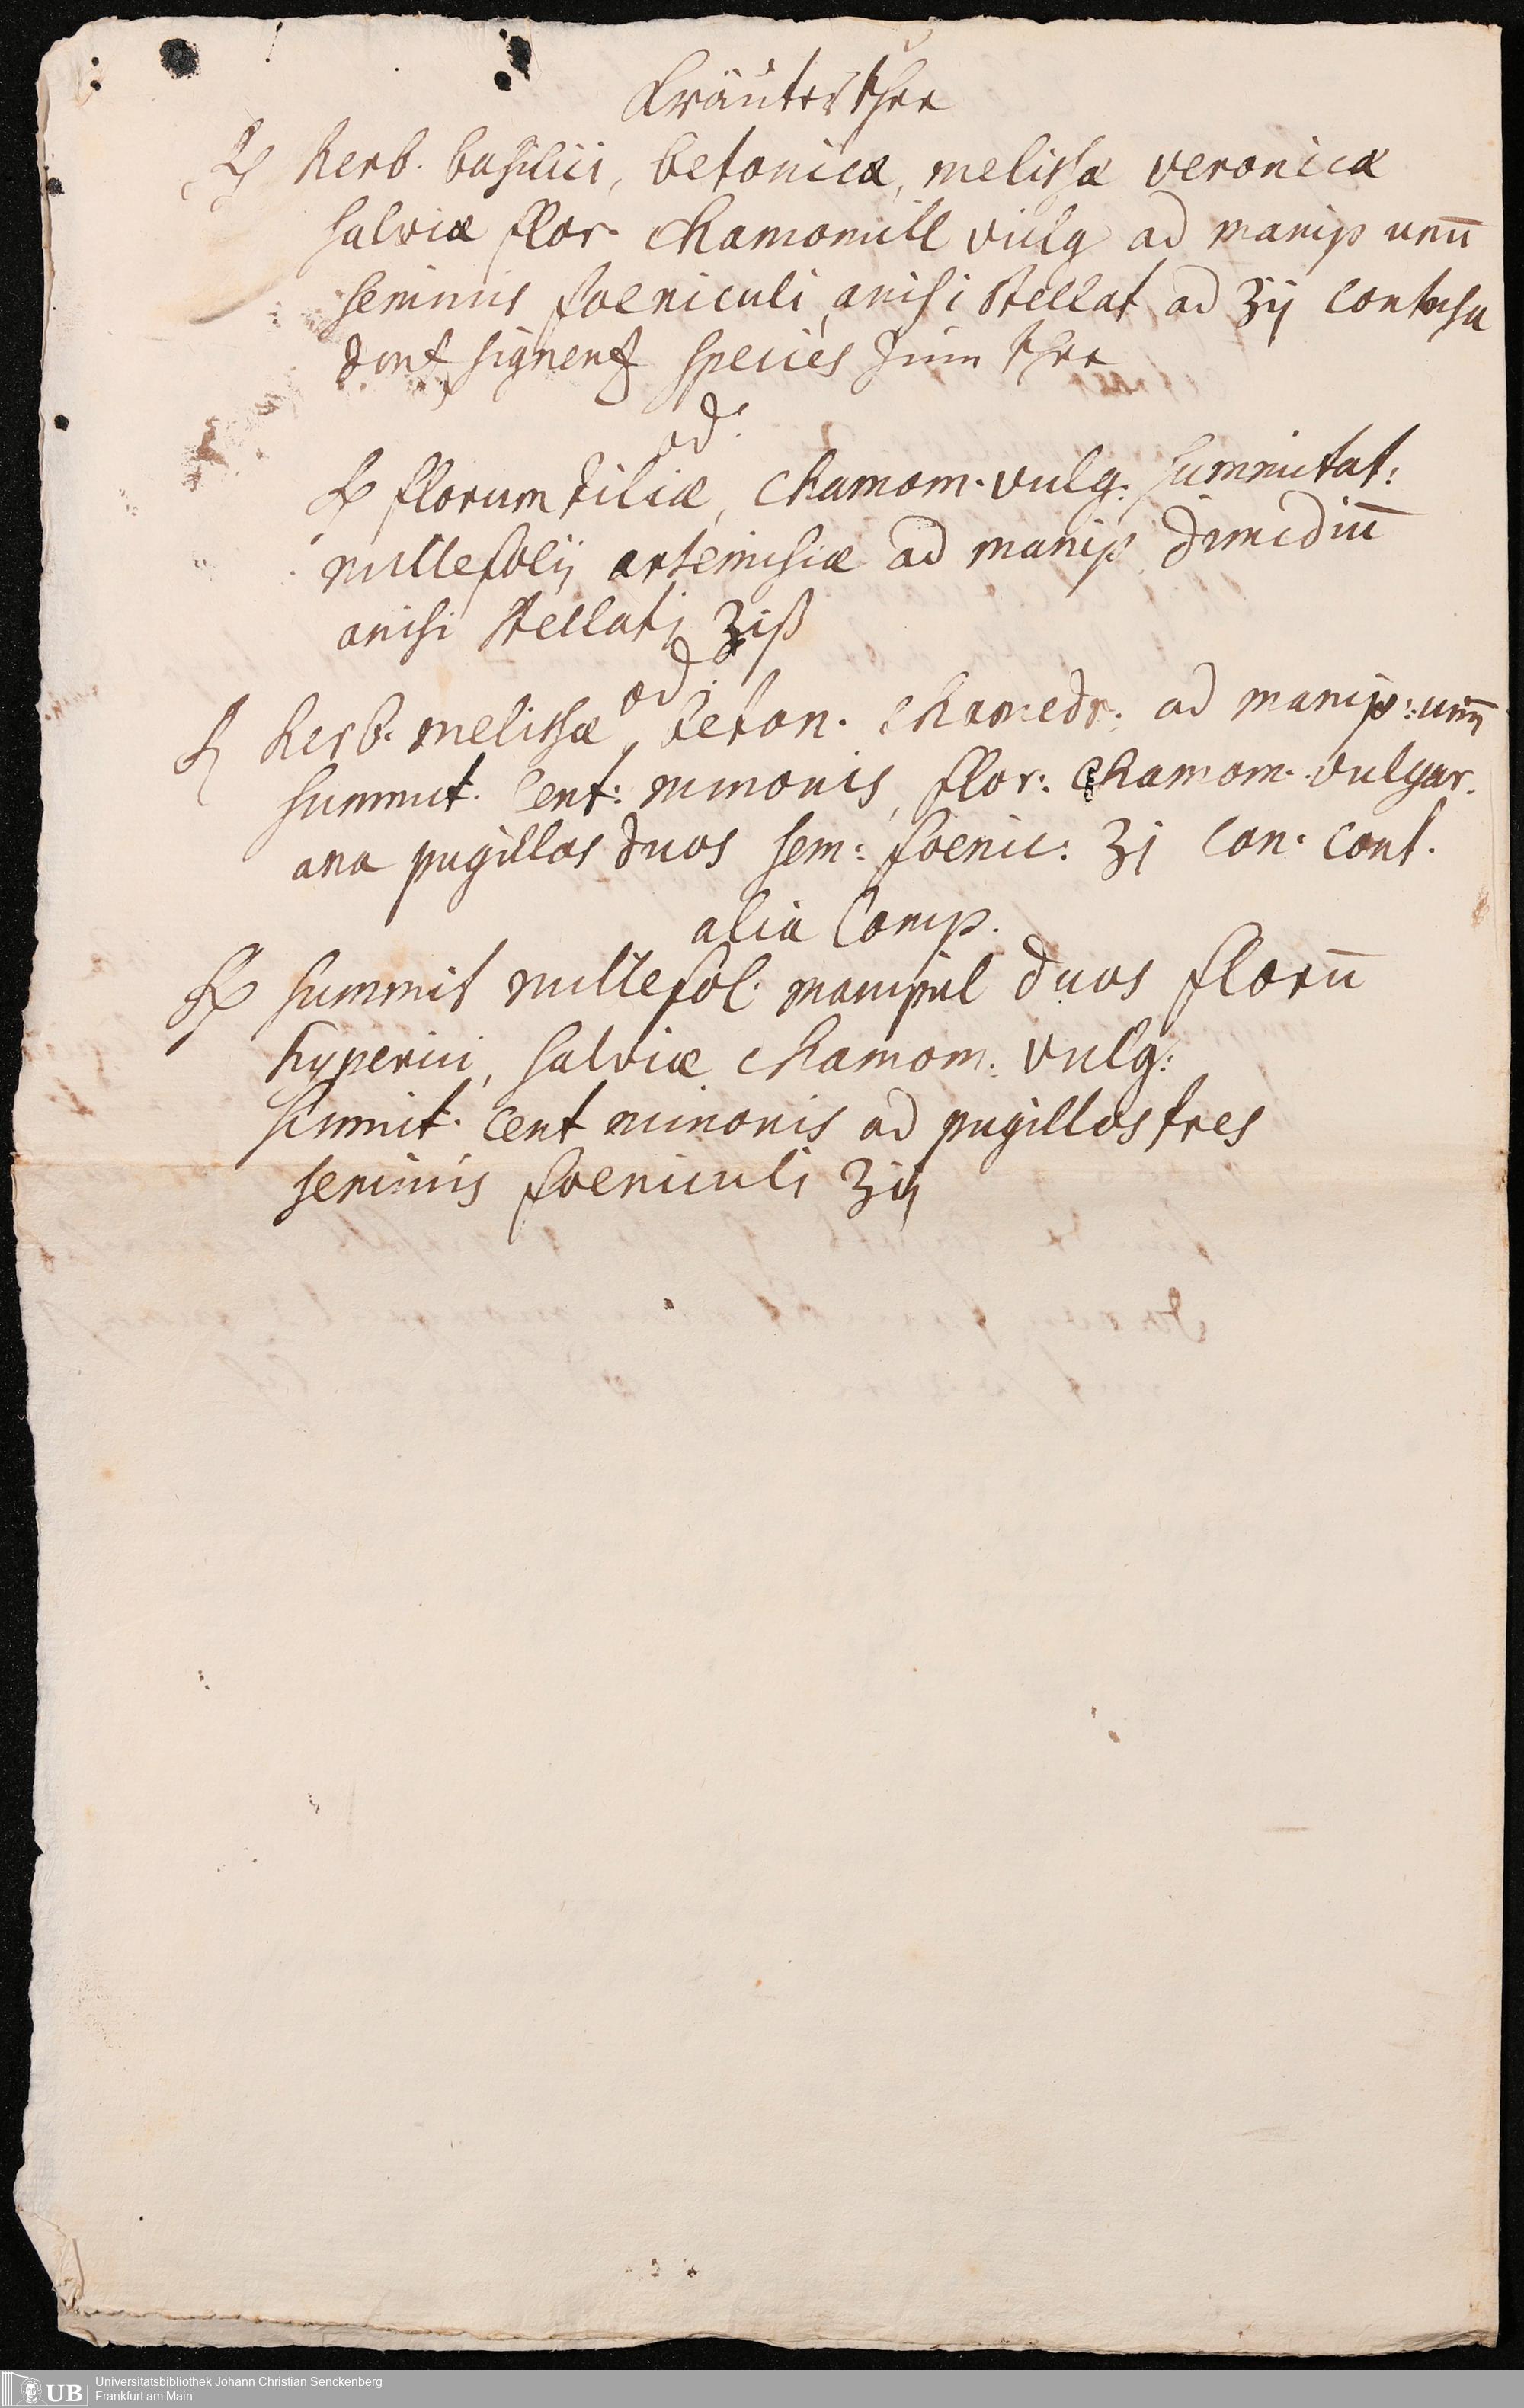 Kräuter thee
℞ herb. basilici, betonicæ, melissæ veronicæ
salviæ flor. chamomill vulg ad manip unū
seminis foeniculi, anisi stellat ad ʒij contusa
dent signent species zum thee
od.
℞ florum tiliæ, chamom. vulg. summitat:
millefolij artemisiæ ad manip dimidiū
anisi stellati ʒiß
od:
℞ herb. melissæ, beton. chamedr. ad manip: unū
summit. Cent: minoris, flor: chamom. vulgar.
ana pugillos duos sem: foenic: ʒj con. cont.
alia Comp.
℞ summit millefol. manipul duos florū
hyperici, salviæ chamom. vulg:
summit. cent minoris ad pugillos tres
seminis foeniculi ʒij
UB
Universitätsbibliothek Johann Christian Senckenberg
Frankfurt am Main